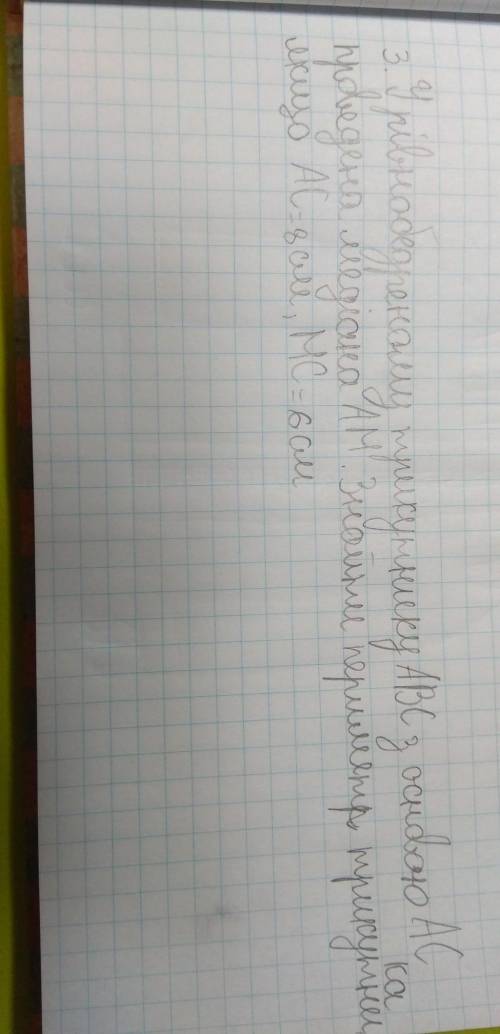 3. У рівнобедреному трикутнику ABC з основою AC
проведена медіана AM. Знайти периметр трикутника
якщо AC = 8 см, MC = 6 см